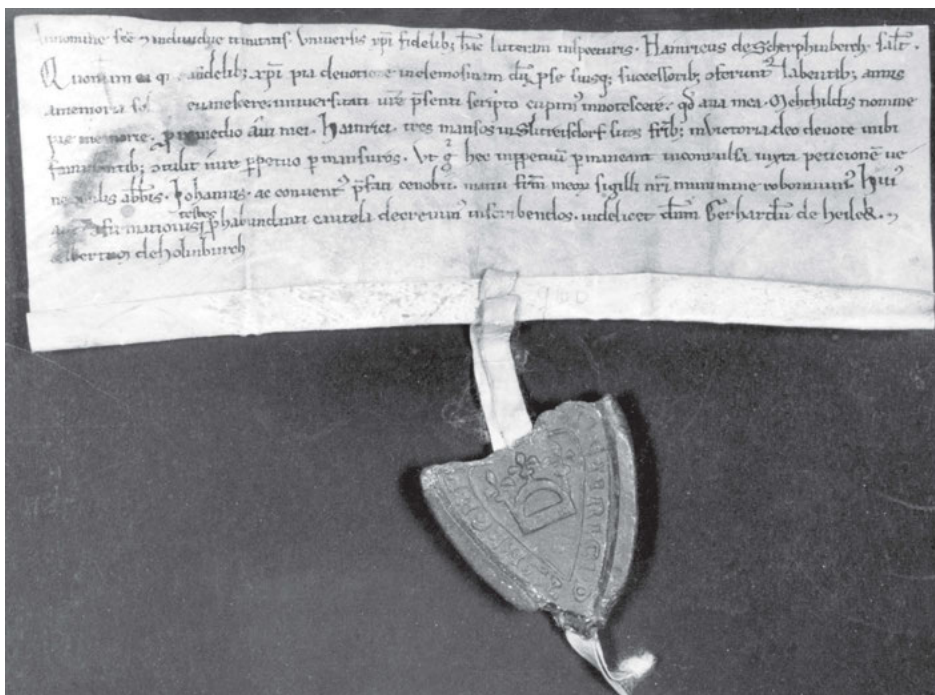 In nomine scē ⁊ individue trinitatis. Universis xp̄i fidelib; hāc litteram inspecturis. Hainricus de Scherphinberch. salt̄.
Quoniam ea q̄ a fidelib; xp̄i pia devotione in elemosinam dn̄i p se suisq; successorib; oferunt² labentib; annis
a memoria evanescere. universitati vr̄e p̄senti scripto cupim² innotescere. qd̄ ava mea. Mehthildis nomine
pie memorie. p remedio avi mei. Hainrici. tres mansos in Sliversdorf sitos frīb; in Victoria deo devote inibi
famulantib; otulit iure ppetuo pmansuros. Ut g̊ hec inppetuū pmaneant inconvulsa iuxta peticionē ve
nabilis abb̄is. Johannis. ac convent² p̄fati cenobii. manu frm̄ meoꝝ sigilli nr̄i munimine roboram². Hui²
firmationis testes p habundanti cautela decrevim² inscribendos. videlicet dn̄m Gerhardū de Heilek. ⁊
bertum de Holnburch